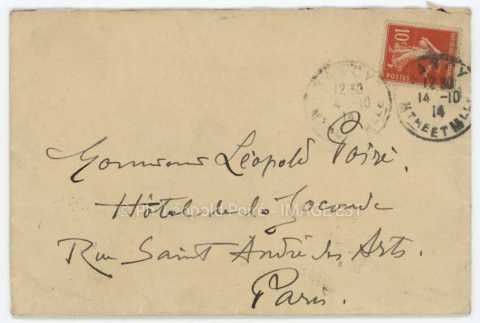 10
POSTES
12 30
14 -10
14
M THE ET MLLE
Monsieur Léopold Poiré
Hôtel de la Joconde
Rue Saint André des Arts.
Paris.
IMAGEST